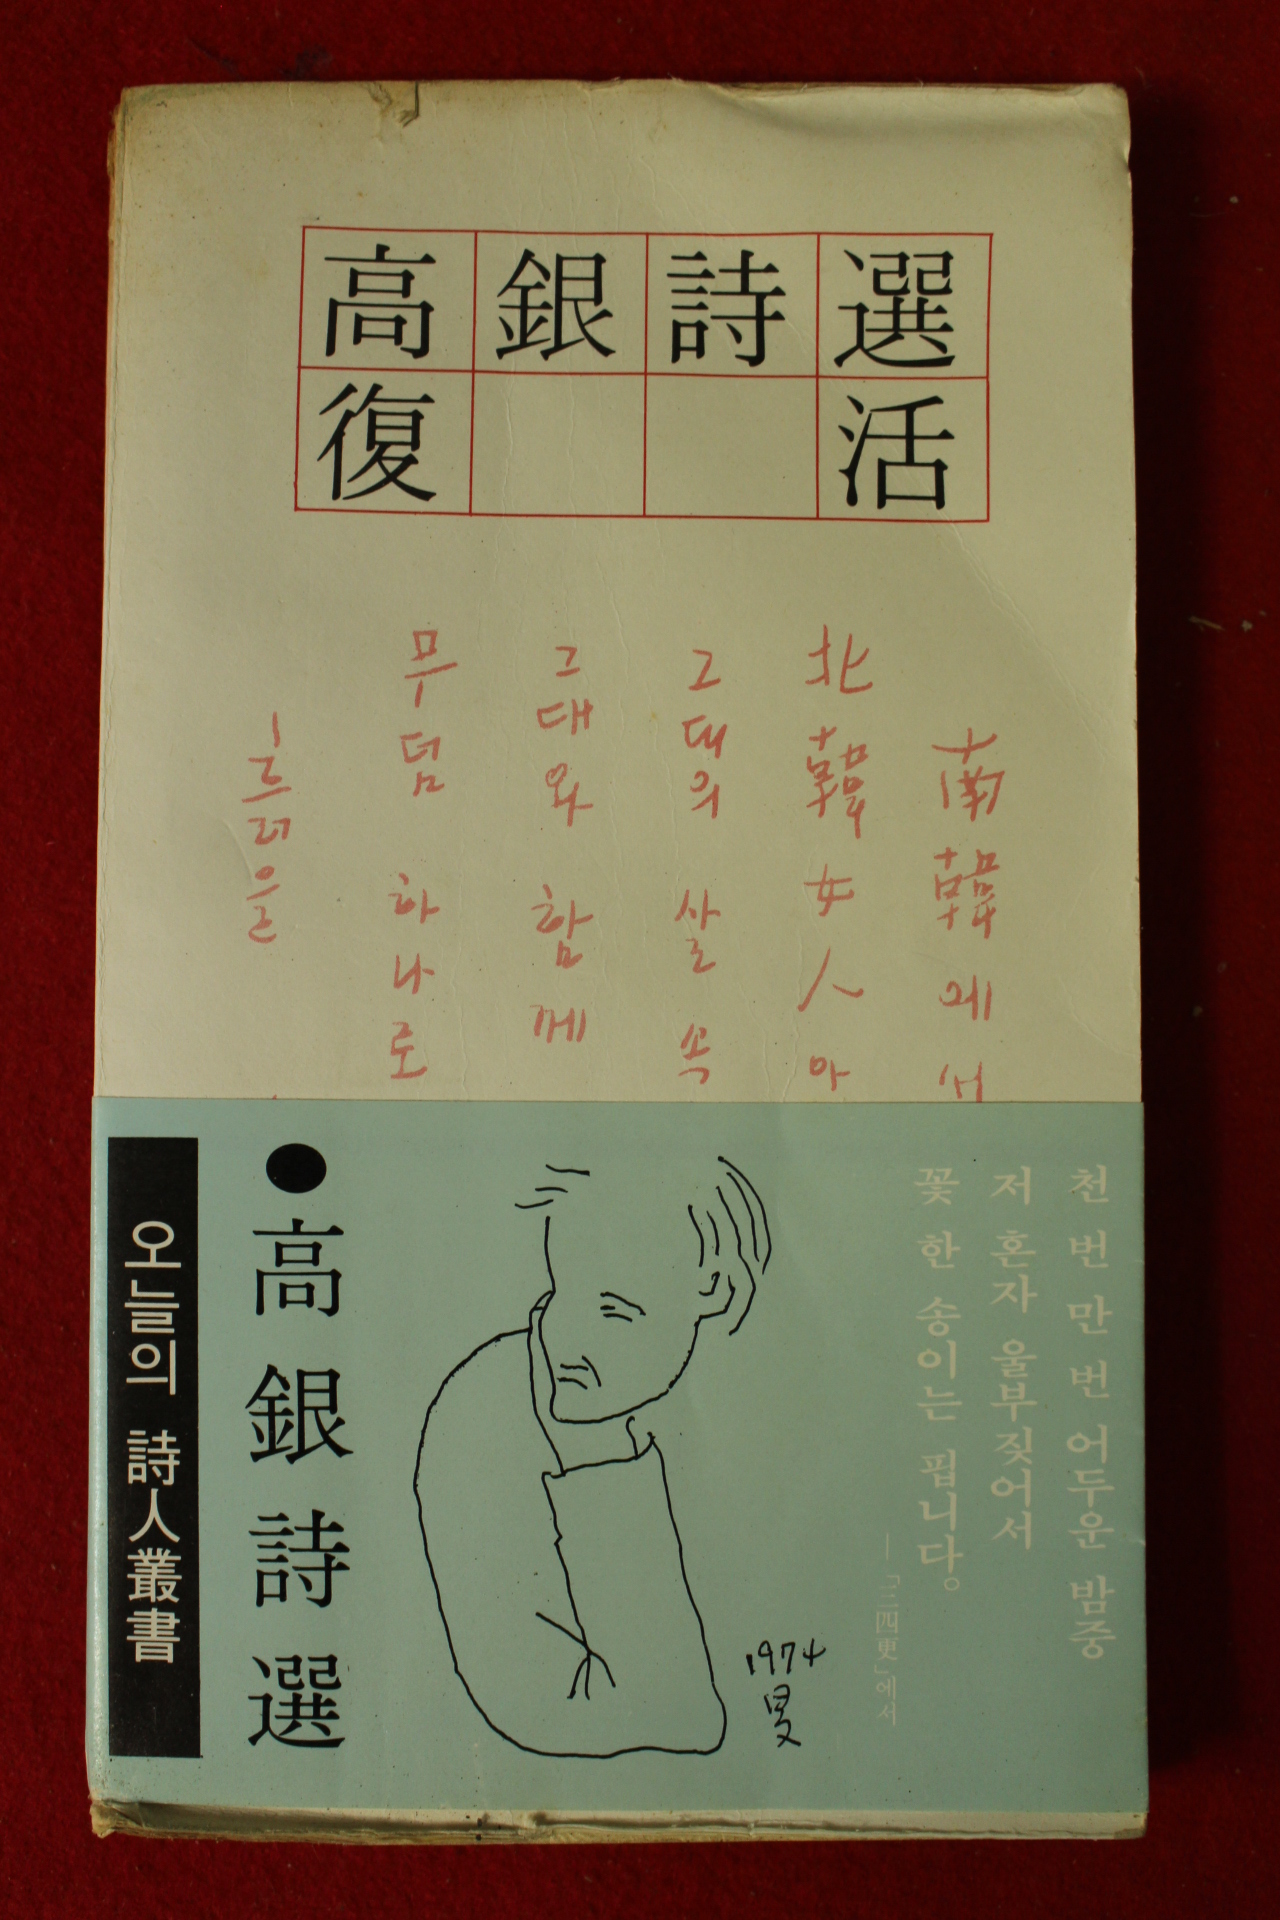 高銀詩選
復活
南韓에서
北韓女人아
그대의 살 속
그대와 함께
무덤 하나로
흐려은
천 번 만 번 어두운 밤중
저 혼자 울부짖어서
꽃 한 송이는 핍니다。
―「三四更」에서
1974
旻
●高銀詩選
오늘의 詩人叢書